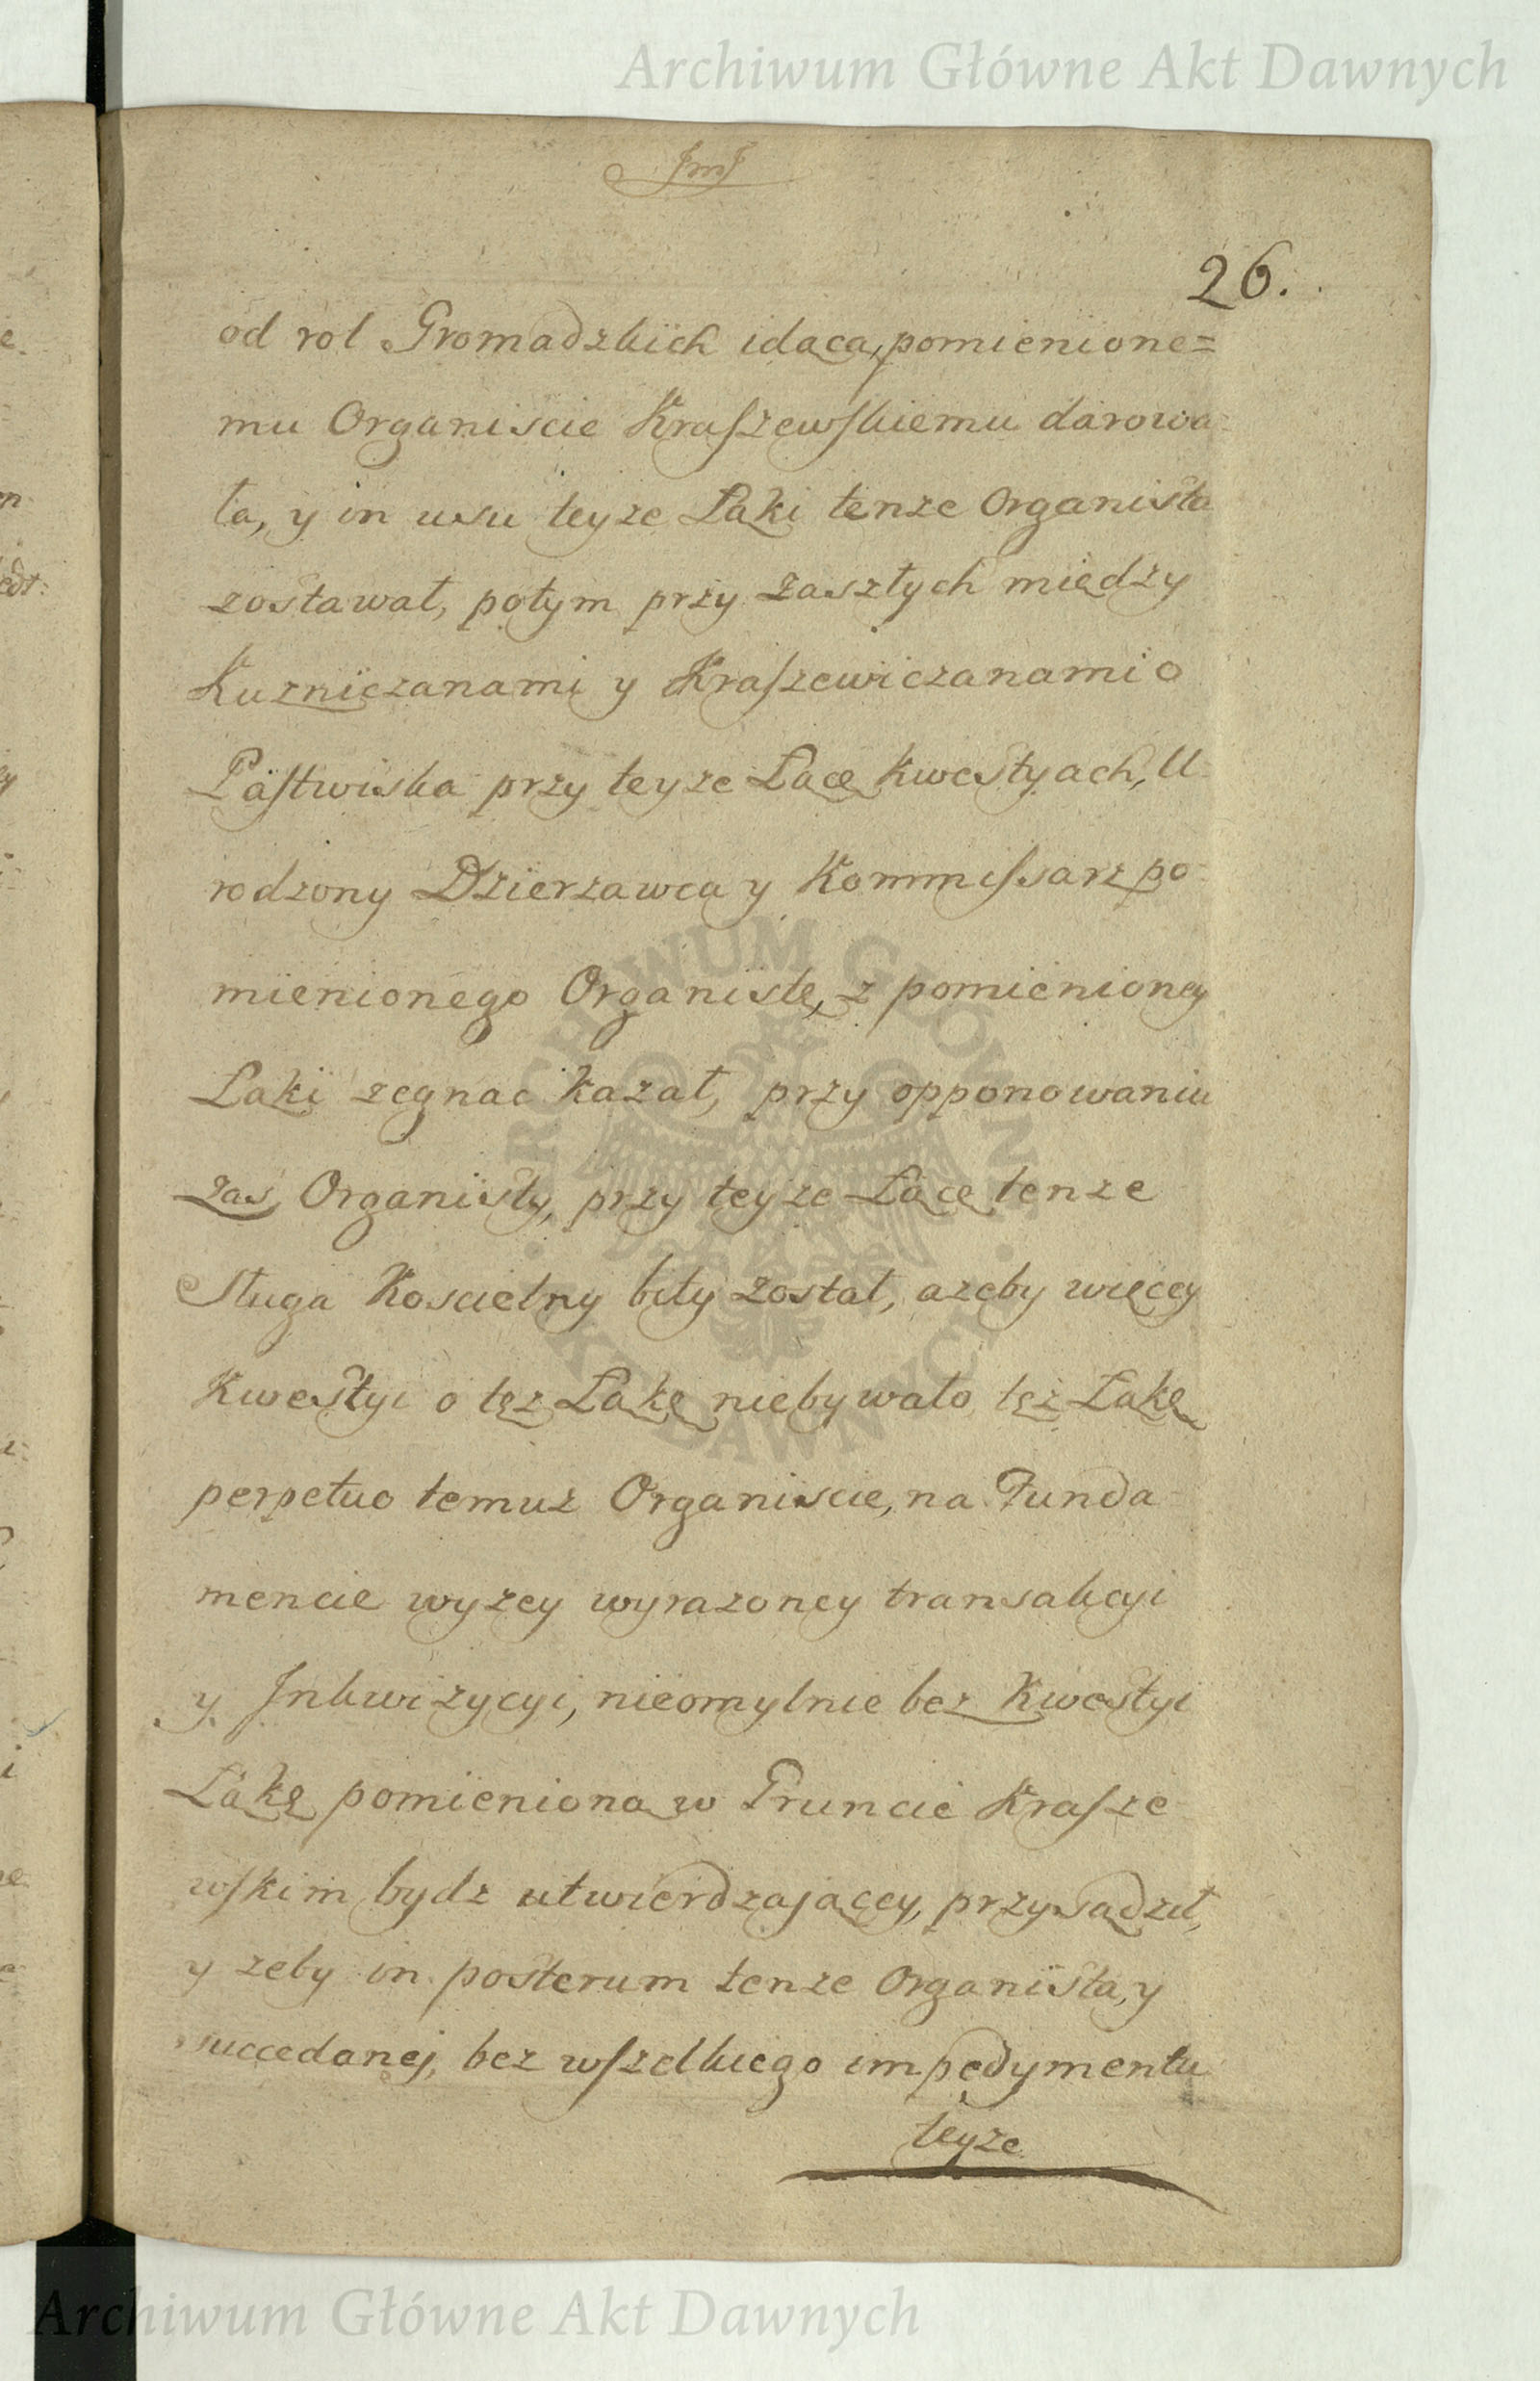 Archiwum Główne Akt Dawnych
JmJ
26.
od rol Gromadzkich idąca, pomienione=
mu Organiscie Kraszewskiemu darowa-
ła, y in usu teyze Łąki tenze Organista
zostawał, potym przy zaszłych między
Kuzniczanami y Kraszewiczanami o
Pastwiska przy teyze Łące kwestyach, U-
rodzony Dzierzawca y Kommissarz po-
mienionego Organistę, z pomienioney
Łąki zegnac kazał, przy opponowaniu
zas Organisty, przy teyze Łące tenze
Sługa Koscielny bity został, azeby więcey
Kwestyi o tęz Łąkę niebywało, tęz Łąkę
perpetuo temuz Organiscie, na Funda-
mencie wyzey wyrazoney transakcyi
y Jnkwizycyi, nieomylnie bez Kwestyi
Łąkę pomienioną w Gruncie Krasze-
wskim bydz utwierdzaiącey, przysądził,
y zeby in posterum tenze Organista, y
succedanej, bez wszelkiego impedymentu
teyze
ARCHIWUM GŁÓWNE AKT DAWNYCH
Archiwum Główne Akt Dawnych